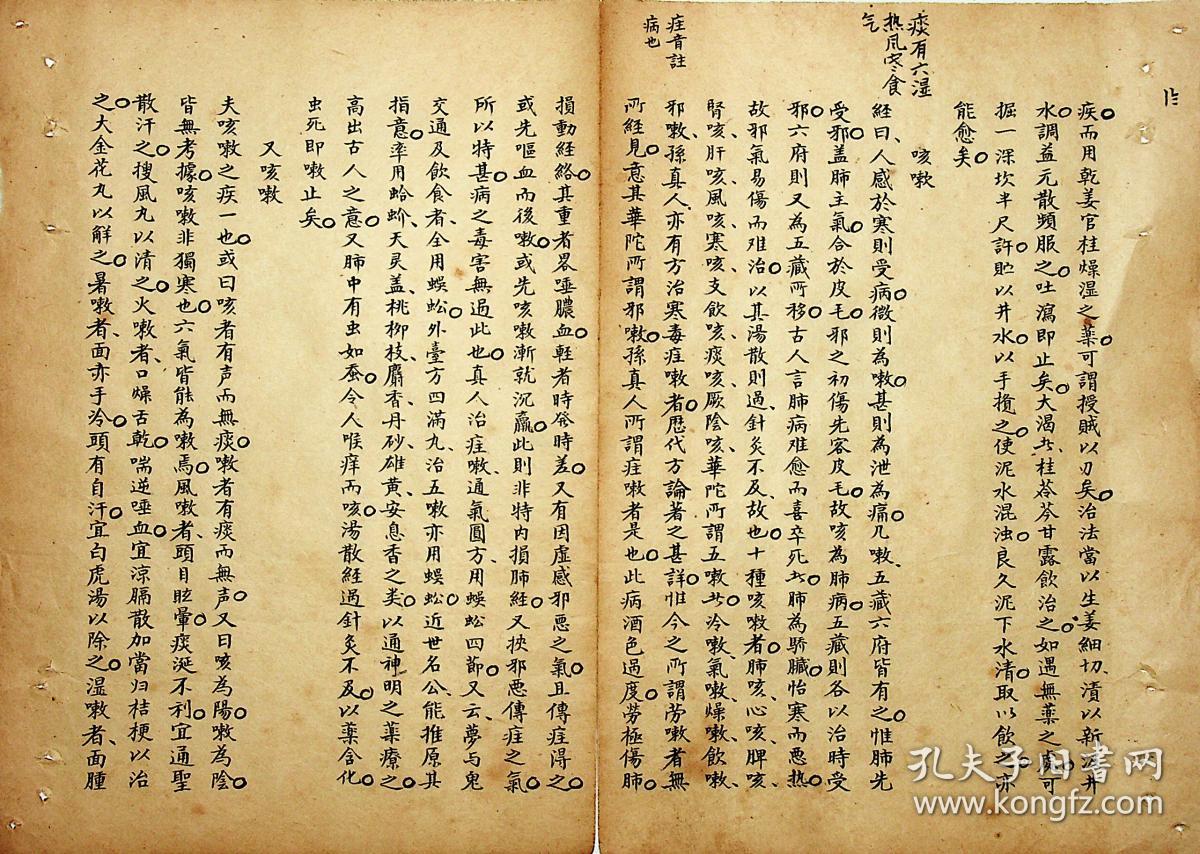 痰有六湿
热风寒食
气
疰音註
病也
疾而用乾姜官桂燥湿之薬可謂授賊以刃矣治法當以生姜細切漬以新汲井
水調益元散頻服之吐瀉即止矣大渴者桂苓甘露飲治之如遇無薬之處可
掘一深坎半尺許貯以井水以手攪之使泥水混浊良久泥下水清取以飲之亦
能愈矣
咳嗽
經曰人感於寒則受病微則為嗽甚則為泄為痛凡嗽五藏六府皆有之惟肺先
受邪盖肺主氣合於皮毛邪之初傷先客皮毛故咳為肺病五藏則各以治時受
邪六府則又為五藏所移古人言肺病难愈而喜卒死者肺為驕臟怡寒而悪热
故邪氣易傷而难治以其湯散則過針灸不及故也十種咳嗽者肺咳心咳脾咳
腎咳肝咳風咳寒咳支飲咳痰咳厥陰咳華陀所謂五嗽者冷嗽氣嗽燥嗽飲嗽
邪嗽孫真人亦有方治寒毒疰嗽者歷代方論著之甚詳惟今之所謂劳嗽者無
所經見意其華陀所謂邪嗽孫真人所謂疰嗽者是也此病酒色過度劳極傷肺
損動経絡其重者咯唾膿血軽者時發時差又有因虚感邪悪之氣且傳疰得之
或先嘔血而後嗽或先咳嗽漸就沉羸此則非特内損肺経又挾邪悪傳疰之氣
所以特甚病之毒害無過此也真人治疰嗽通氣圓方用蜈蚣四節又云夢与鬼
交通及飲食者全用蜈蚣外臺方四滿丸治五嗽亦用蜈蚣近世名公能推原其
指意率用蛤蚧天灵盖桃柳枝麝香丹砂雄黄安息香之类以通神明之薬療之
高出古人之意又肺中有虫如蚕令人喉痒而咳湯散経過針灸不及以薬含化
虫死即嗽止矣
又咳嗽
夫咳嗽之疾一也或曰咳者有声而無痰嗽者有痰而無声又曰咳為陽嗽為陰
皆無考據咳嗽非獨寒也六氣皆能為嗽焉風嗽者頭目眩暈痰涎不利宜通聖
散汗之搜風丸以清之火嗽者口燥舌乾喘逆唾血宜涼膈散加當归桔梗以治
之大金花丸以解之暑嗽者面亦手冷頭有自汗宜白虎湯以除之湿嗽者面腫
孔夫子旧书网
www.kongfz.com